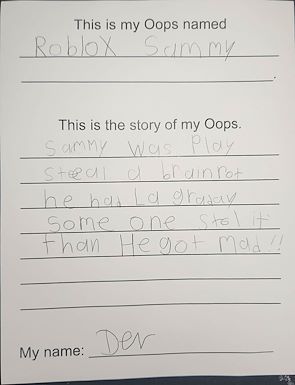 This is my Oops named
Roblox Sammy
This is the story of my Oops.
Sammy was Play
steeal a brainrot
he had La graday
some one stol it
than He got mad!!
My name: Dev